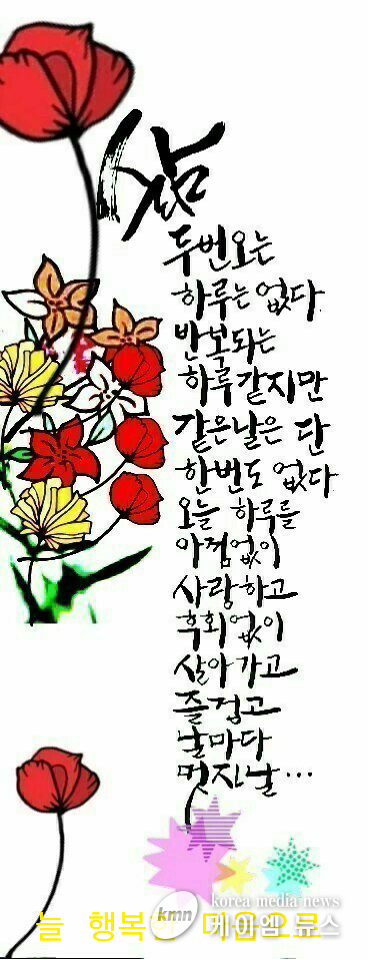 삶
두번오는
하루는 없다
반복되는
하루같지만
같은날은 단
한번도 없다
오늘 하루를
아낌없이
사랑하고
후회없이
살아가고
즐겁고
날마다
멋진날...
늘 행복한 마음으로
kmn
korea media news
케이엠 뉴스